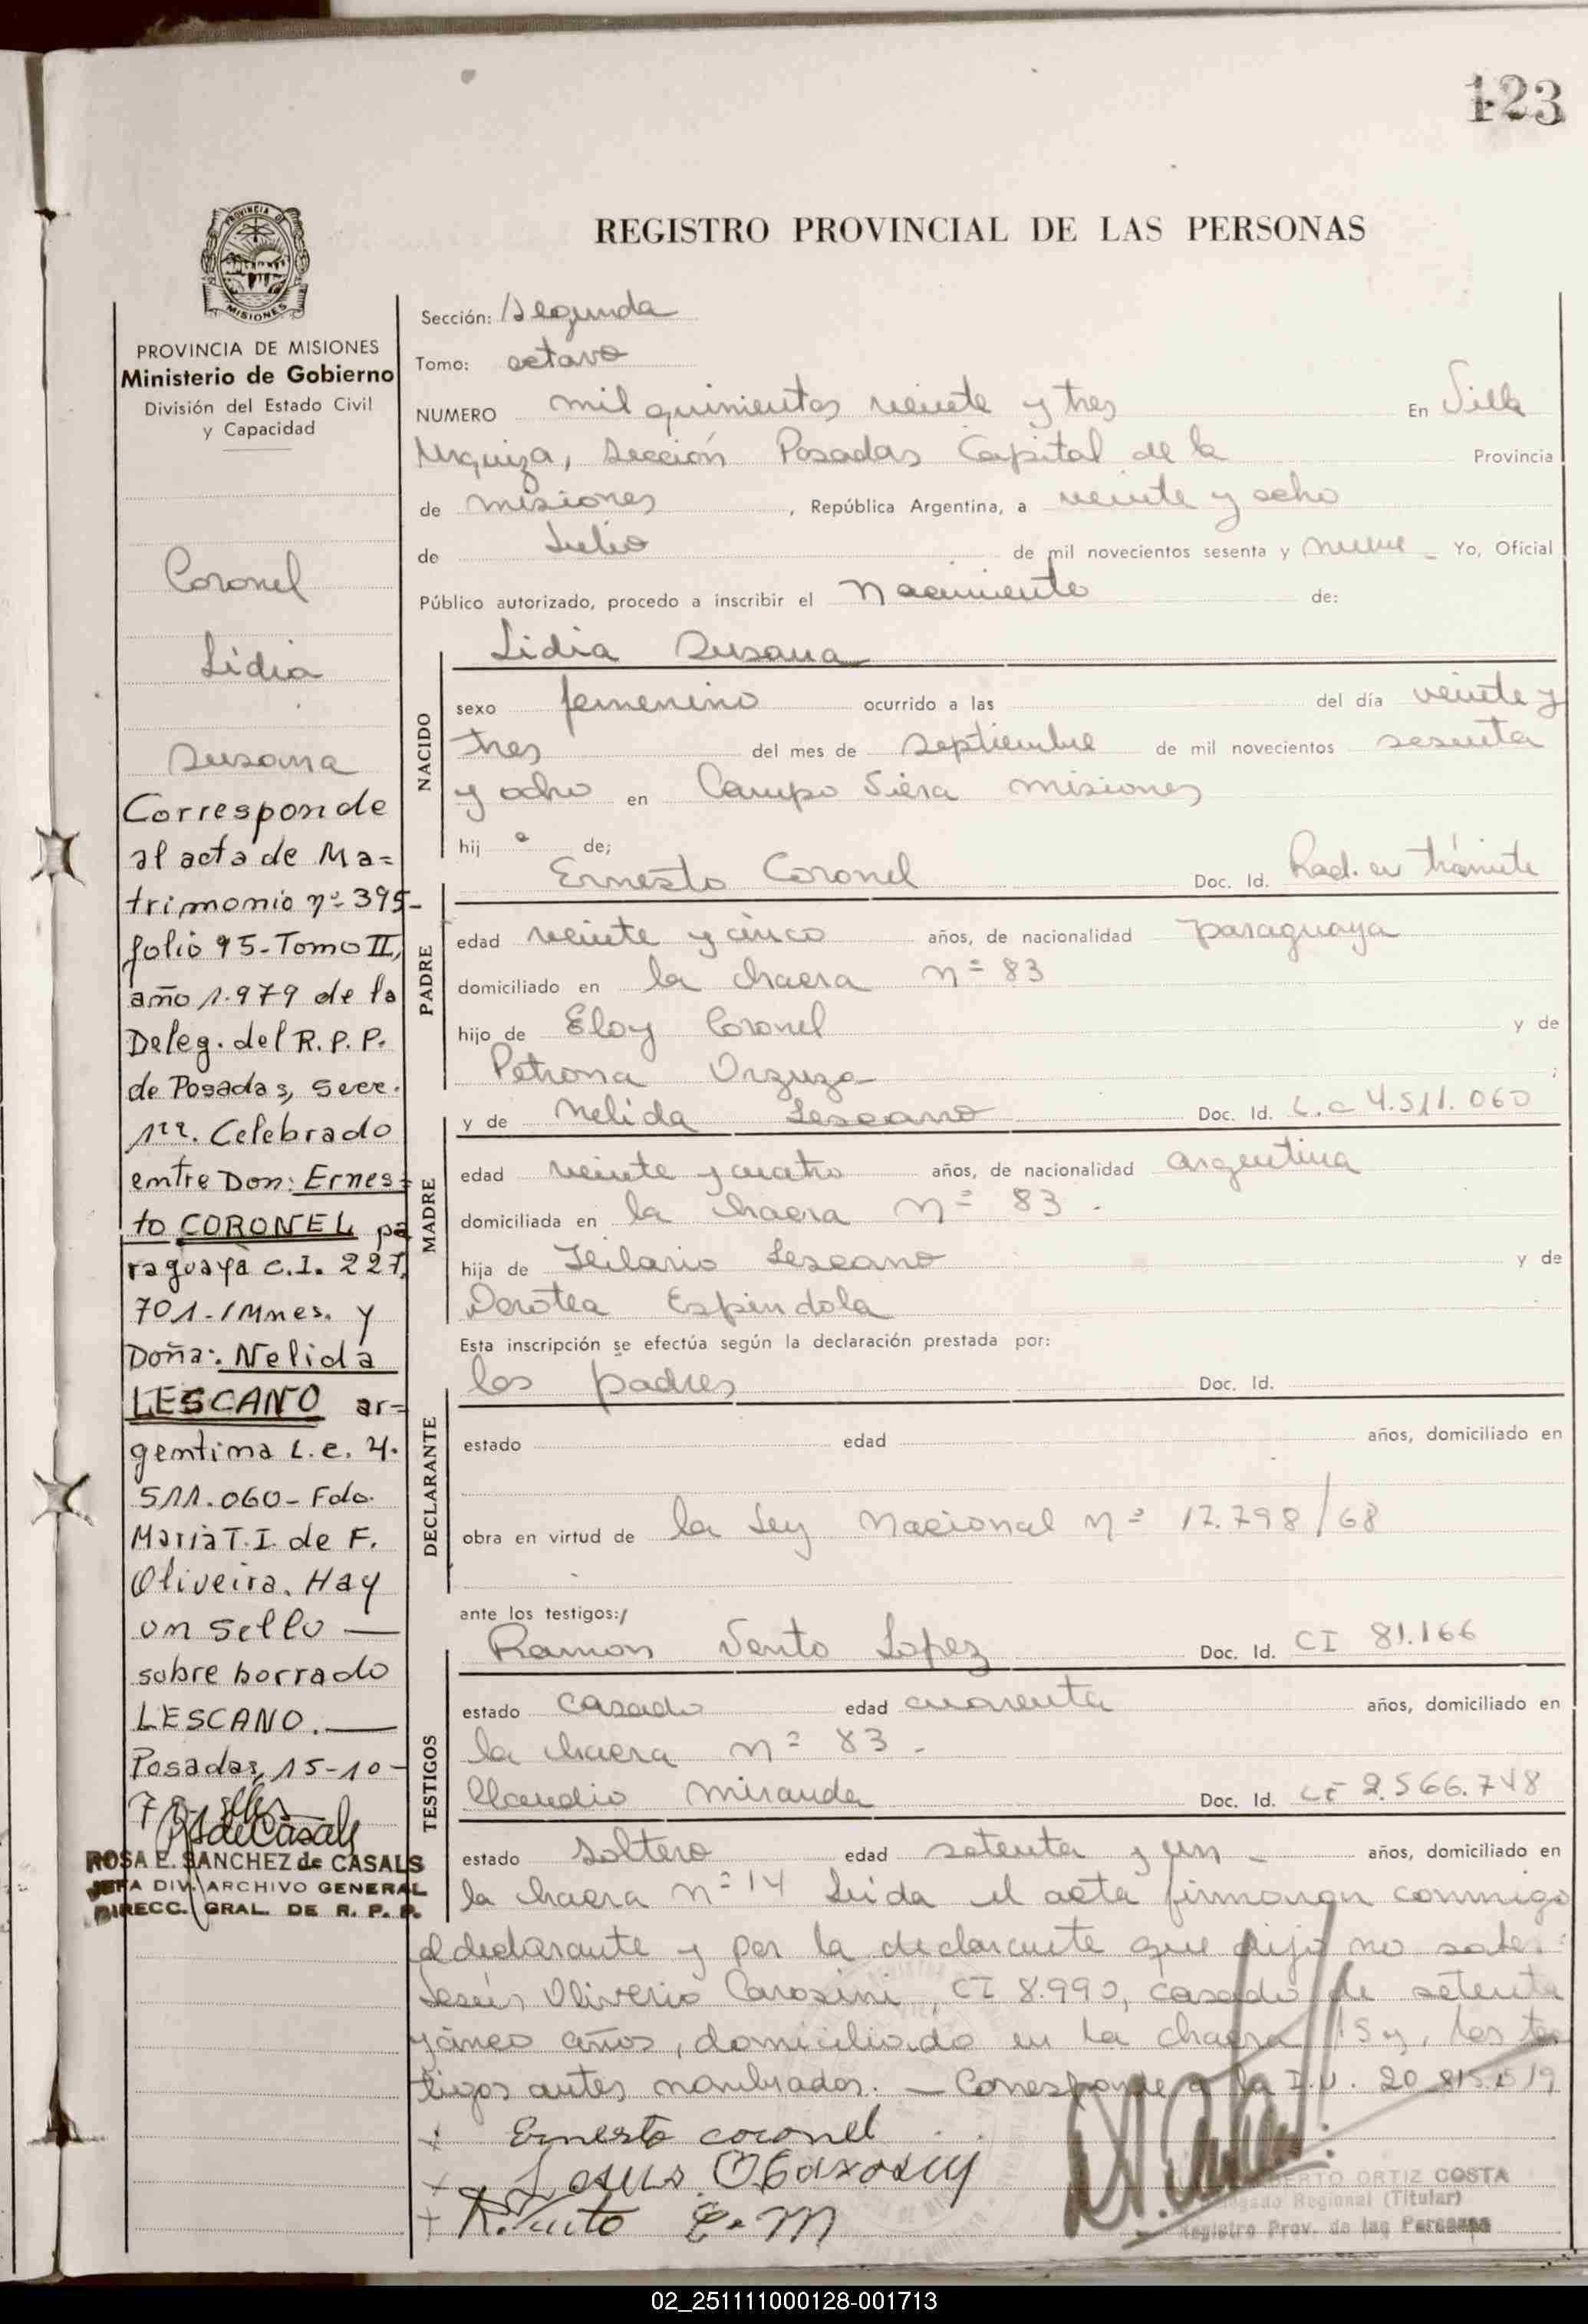 123
REGISTRO PROVINCIAL DE LAS PERSONAS
PROVINCIA DE
MISIONES
PROVINCIA DE MISIONES
Ministerio de Gobierno
División del Estado Civil
y Capacidad
Coronel
Lidia
Susana
Corresponde
al acta de Ma=
trimonio nº 395-
folio 95-Tomo II,
año 1.979 de la
Deleg. del R. P. P.
de Posadas, Secc.
1ra. Celebrado
entre Don: Ernes=
to CORONEL pa
raguaya C.I. 227.
701-/Mnes. y
Doña: Nelida
LESCANO ar=
gentina L.C. 4.
511.060- Fdo.
Maria T. I. de F.
Oliveira. Hay
un sello —
sobre borrado
LESCANO. —
Posadas, 15-10-
ROSA E. SANCHEZ de CASALS
JEFA DIV. ARCHIVO GENERAL
DIRECC. GRAL. DE R. P. P.
Sección: Segunda
Tomo: octavo
NUMERO mil quinientos veinte y tres En Villa
Urquiza, Sección Posadas Capital de la Provincia
de misiones, República Argentina, a veinte y ocho
de Julio de mil novecientos sesenta y nueve Yo, Oficial
Público autorizado, procedo a inscribir el Nacimiento de:
Lidia Susana
NACIDO
sexo femenino ocurrido a las del día veinte y
tres del mes de septiembre de mil novecientos sesenta
y ocho en Campo Viera misiones
hij a de;
Ernesto Coronel Doc. Id. Rad. en trámite
PADRE
edad veinte y cinco años, de nacionalidad paraguaya
domiciliado en la chacra nº 83
hijo de Eloy Coronel y de
Petrona Orzuza ;
y de Nelida Lescano Doc. Id. L.C 4.511.060
MADRE
edad veinte y cuatro años, de nacionalidad argentina
domiciliada en la chacra nº 83 .
hija de Hilario Lescano y de
Dorotea Espindola
Esta inscripción se efectúa según la declaración prestada por:
los padres Doc. Id.
DECLARANTE
estado edad años, domiciliado en
obra en virtud de la Ley Nacional nº 17.798/68
ante los testigos:/
Ramon Vento Lopez Doc. Id. CI 81.166
TESTIGOS
estado casado edad cuarenta años, domiciliado en
la chacra nº 83 -
Claudio Miranda Doc. Id. 2.566.748
estado soltero edad setenta y un - años, domiciliado en
la chacra nº 14 Leida el acta firmaron conmigo
el declarante y por la declarante que dijo no saber
Jesús Oliverio Carosini, CI 8.990, casado de setenta
y cinco años, domiciliado en la chacra los tes
tigos antes nombrados. — Corresponde a la
+ Ernesto coronel
+ Jesus O
+ R. Vento C. M
ORTIZ COSTA
Delegado Regional (Titular)
Registro Prov. de las Personas
02_251111000128-001713